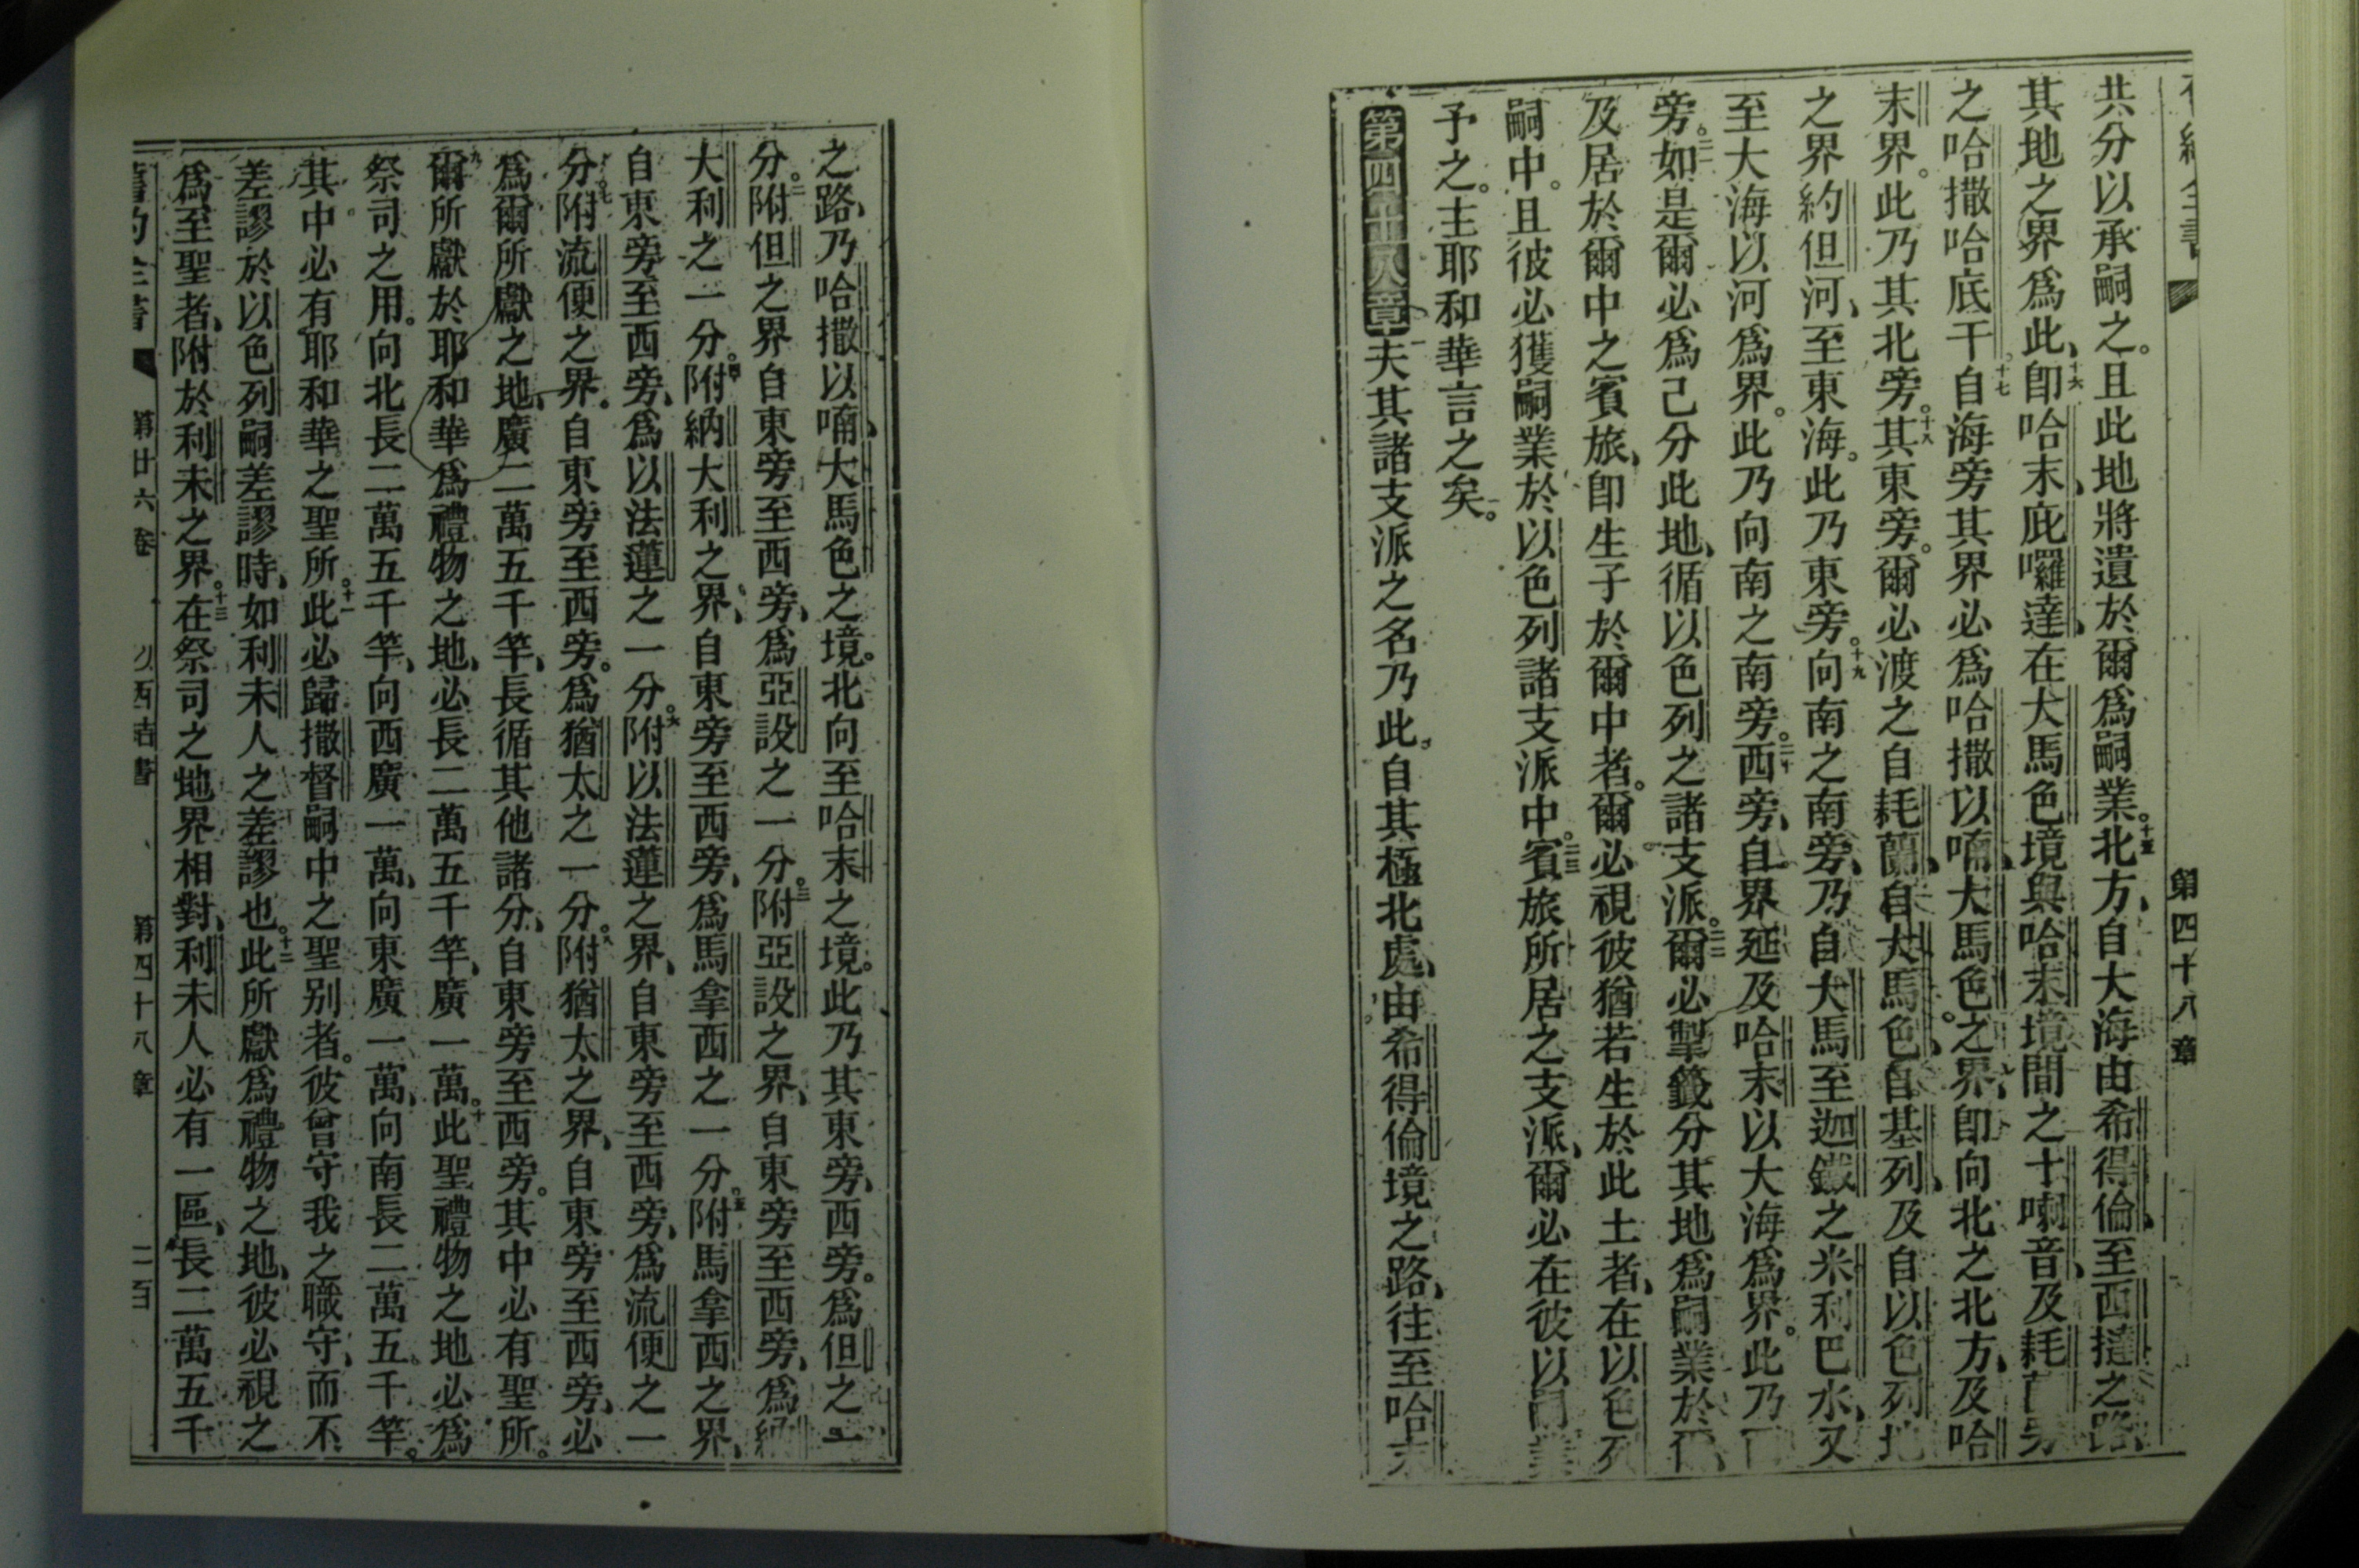 第四十八章
共分以承嗣之。且此地將遺於爾爲嗣業。十五北方、自大海由希得倫、至西撻之路、
其地之界爲此、十六卽哈末、庇囉達、在大馬色境與哈末境間之十喇音、及耗
之哈撒哈底干。十七自海旁其界必爲哈撒以喃、大馬色之界、卽向北之北方、及哈
末界。此乃其北旁。十八其東旁。爾必渡之自耗蘭、自大馬色、自基列、及自以色列地
之界約但河、至東海。此乃東旁。十九向南之南旁、乃自大馬至迦鐵之米利巴水、又
至大海以河爲界。此乃向南之南旁。二十西旁、自界延及哈末以大海爲界。此乃
旁。如是爾必爲己分此地、循以色列之諸支派。爾必掣籤分其地爲嗣業於
及居於爾中之賓旅、卽生子於爾中者。爾必視彼猶若生於此土者、在以色列
嗣中。且彼必獲嗣業於以色列諸支派中。賓旅所居之支派、爾必在彼以
予之。主耶和華言之矣。
第四十八章 一夫其諸支派之名乃此。自其極北處、由希得倫境之路、往至哈末
之路、乃哈撒以喃、大馬色之境。北向至哈末之境。此乃其東旁、西旁。爲但之一
分。二附但之界、自東旁至西旁、爲亞設之一分。三附亞設之界、自東旁至西旁、爲納
大利之一分。四附納大利之界、自東旁至西旁、爲馬拿西之一分。五附馬拿西之界、
自東旁至西旁、爲以法蓮之一分。六附以法蓮之界、自東旁至西旁、爲流便之一
分。七附流便之界。自東旁至西旁。爲猶太之一分。八附猶太之界、自東旁至西旁、必
爲爾所獻之地、廣二萬五千竿、長循其他諸分、自東旁至西旁。其中必有聖所。
九爾所獻於耶和華爲禮物之地、必長二萬五千竿、廣一萬。十此聖禮物之地必爲
祭司之用。向北長二萬五千竿、向西廣一萬、向東廣一萬、向南長二萬五千竿。
其中必有耶和華之聖所。十一此必歸撒督嗣中之聖別者。彼曾守我之職守、而不
差謬於以色列嗣差謬時、如利未人之差謬也。十二此所獻爲禮物之地、彼必視之
爲至聖者、附於利未之界。十三在祭司之地界相對、利未人必有一區、長二萬五千
第廿六卷 第四十八章